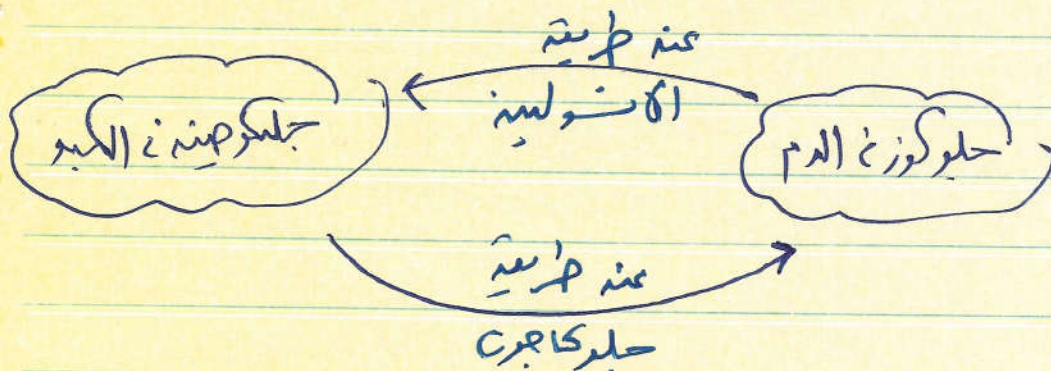 عن طريق
الانسولين
جليكوجين في الكبد
جلوكوز في الدم
عن طريق
جلوكاجون